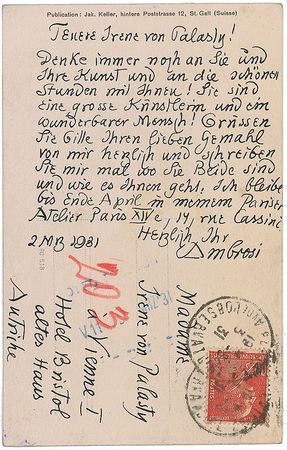 Publication: Jak. Keller, hintere Poststrasse 12, St. Gall (Suisse)
Teuere Irene von Palasty!
Denke immer noch an Sie und
Ihre Kunst und an die schönen
Stunden mit Ihnen! Sie sind
eine grosse Künstlerin und ein
wunderbarer Mensch! Grüssen
Sie bitte Ihren lieben Gemahl
von mir herzlich und schreiben
Sie mir mal wo Sie Beide sind
und wie es Ihnen geht. Ich bleibe
bis Ende April in meinem Pariser
Atelier Paris XIVe, 14, rue Cassini
Herzlich Ihr
Ambrosi
2 MB 1931
203
Madame
Irene von Palasty
à Vienne I
Hotel Bristol
altes Haus
Autriche